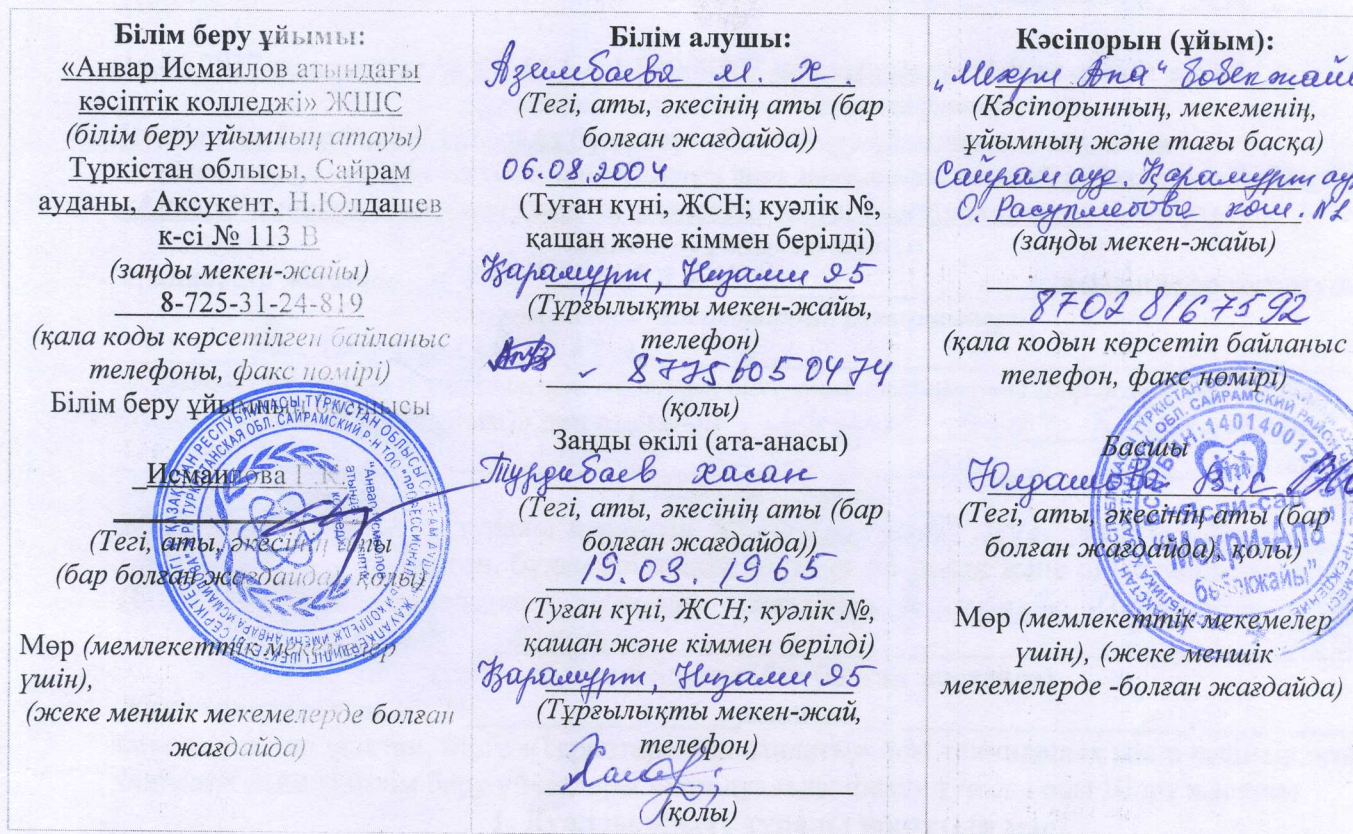 Білім беру ұйымы:
«Анвар Исмаилов атындағы
кәсіптік колледжі» ЖШС
(білім беру ұйымның атауы)
Түркістан облысы, Сайрам
ауданы, Аксукент, Н.Юлдашев
к-сі № 113 В
(заңды мекен-жайы)
8-725-31-24-819
(қала коды көрсетілген байланыс
телефоны, факс нөмірі)
Білім беру ұйымның басшысы
Исмаилова Г.К.
(Тегі, аты, әкесінің аты
(бар болған жағдайда), қолы)
Мөр (мемлекеттік мекемелер
үшін),
(жеке меншік мекемелерде болған
жағдайда)
Білім алушы:
Азимбаева М. Х
(Тегі, аты, әкесінің аты (бар
болған жағдайда))
06.08.2004
(Туған күні, ЖСН; куәлік №,
қашан және кіммен берілді)
Қарамурт, Низами 95
(Тұрғылықты мекен-жайы,
телефон)
87756050474
(қолы)
Заңды өкілі (ата-анасы)
Турдибаев Хасан
(Тегі, аты, әкесінің аты (бар
болған жағдайда))
19.03.1965
(Туған күні, ЖСН; куәлік №,
қашан және кіммен берілді)
Қарамурт, Низами 95
(Тұрғылықты мекен-жай,
телефон)
(қолы)
Кәсіпорын (ұйым):
„Мехри Апа" бөбекжайы
(Кәсіпорынның, мекеменің,
ұйымның және тағы басқа)
Сайрам ауд. Қарамурт
(заңды мекен-жайы)
87028167592
(қала кодын көрсетіп байланыс
телефон, факс нөмірі)
Басшы
Юлдашова В.С.
(Тегі, аты, әкесінің аты (бар
болған жағдайда), қолы)
"Ясли-сад
"Мехри-Апа"
бөбекжайы"
Мөр (мемлекеттік мекемелер
үшін), (жеке меншік
мекемелерде -болған жағдайда)